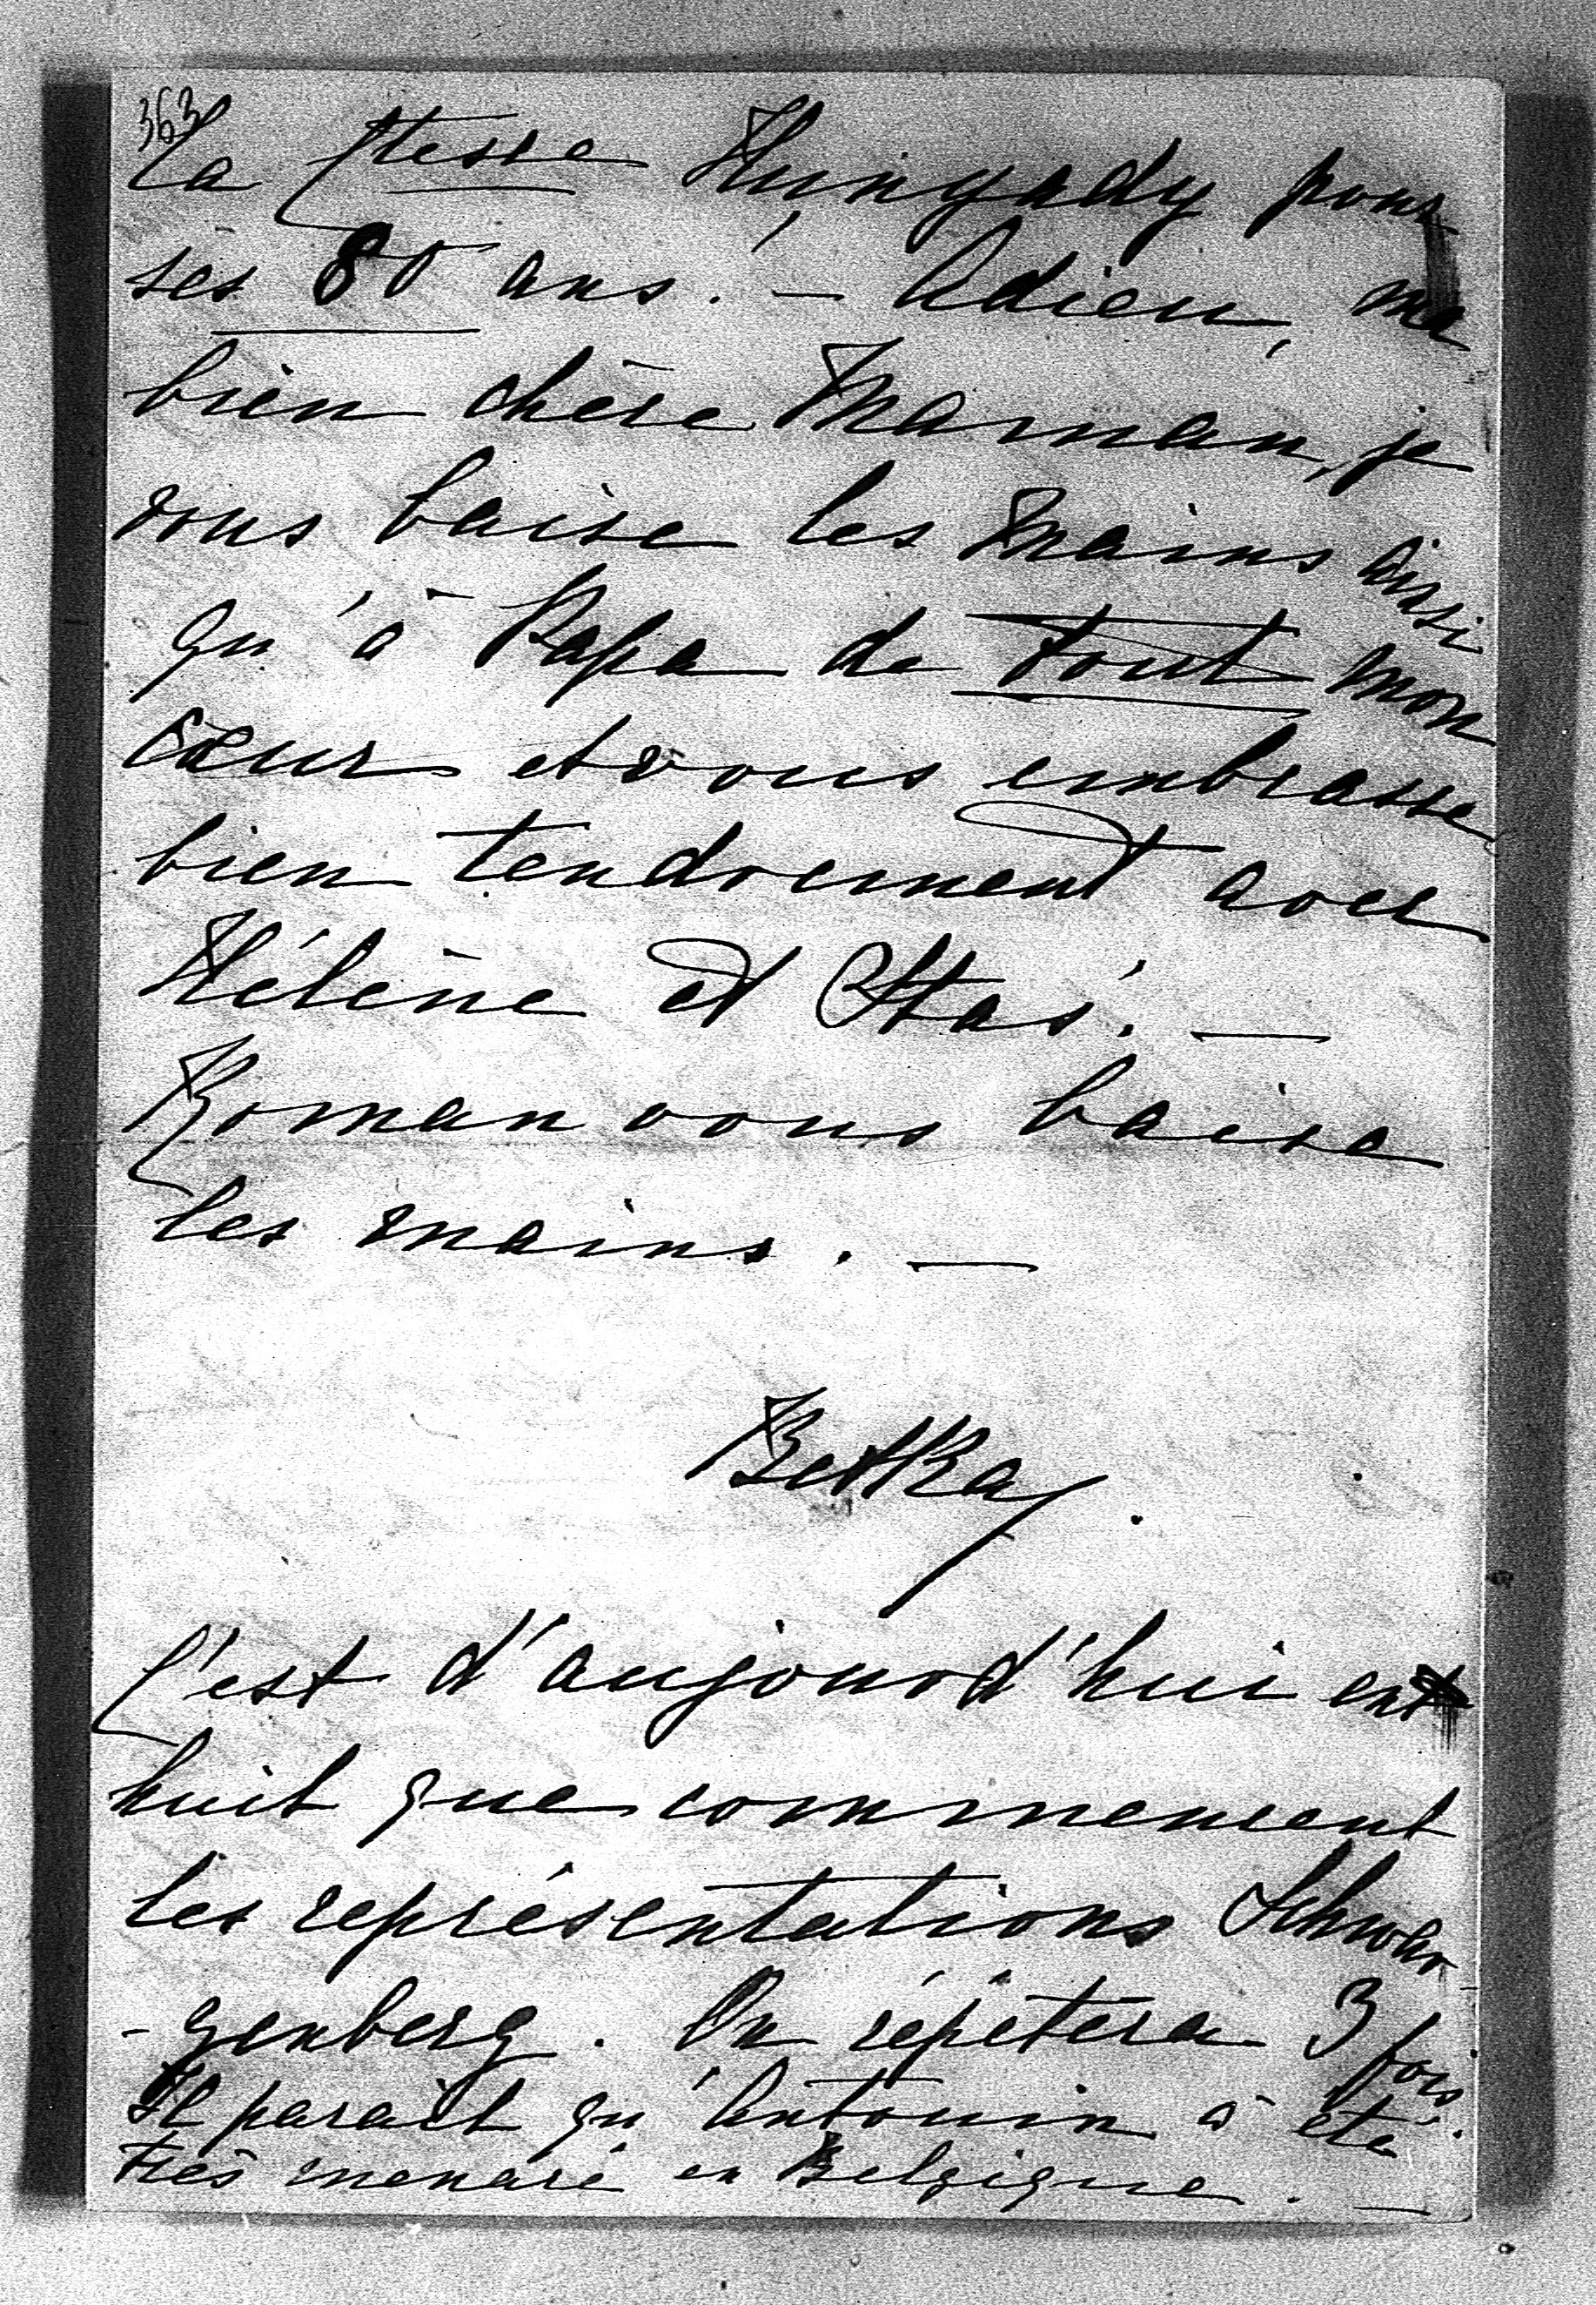 363
la Ctesse Hunyady pour
ses 80 ans. — Adieu, ma
bien chère Maman, je
vous baise les mains ainsi
qu'à Papa de tout mon
cœur et vous embrasse
bien tendrement avec
Hélène et Staś. —
Roman vous baise
les mains. —
Betka.
C'est d'aujourd'hui en
huit que commencent
les représentations Schwar-
-zenberg. On répétera 3 fois.
Il paraît qu'Antonin a été
très menacé en Belgique. —